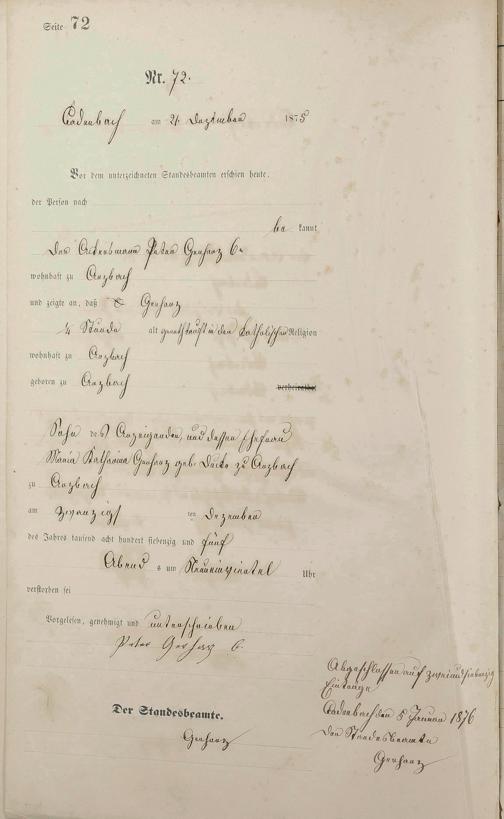 Seite 72
Nr. 72.
Cadenbach am 21 Dezember 1875
Vor dem unterzeichneten Standesbeamten erschien heute,
der Person nach
be kannt
Der Ackersmann Peter Gerharz 6.
wohnhaft zu Arzbach
und zeigte an, daß Gerharz
¼ Stunde alt genothtauft in der katholischen Religion
wohnhaft zu Arzbach
geboren zu Arzbach verheirathet
Sohn des Anzeigenden, und dessen Ehefrau
Maria Katharina Gerharz geb. zu Arzbach
zu Arzbach
am zwanzigs ten Dezember
des Jahres tausend acht hundert siebenzig und fünf
Abend s um Uhr
verstorben sei
Vorgelesen, genehmigt und unterschrieben
Peter Gerharz 6.
Der Standesbeamte.
Gerharz
Abgeschlossen auf zweiundsiebenzig
Eintraege
Cadenbach den 5 Januar 1876
Der Standesbeamte
Gerharz